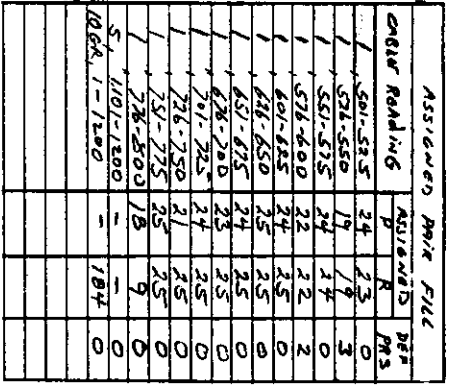 ASSIGNED PAIR FILL
CABLE READING ASSIGNED DEF PRS
P R
1, 501-525 24 23 0
1, 526-550 19 19 3
1, 551-575 24 24 0
1, 576-600 22 22 2
1, 601-625 24 25 0
1, 626-650 25 25 0
1, 651-675 24 25 0
1, 676-700 23 25 0
1, 701-725 24 25 0
1, 726-750 21 25 0
1, 751-775 25 25 0
1, 776-800 18 9 0
5, 1101-1200 - - 0
10GR, 1-1200 - 184 0